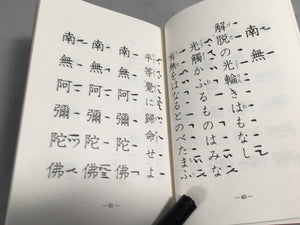 南無
解脱の光輪きはもなし
光觸かぶるものはみな
有無をはなるとのべたまふ
平等覺に歸命せよ
南無阿彌陀佛
南無阿彌陀佛
南無阿彌陀佛